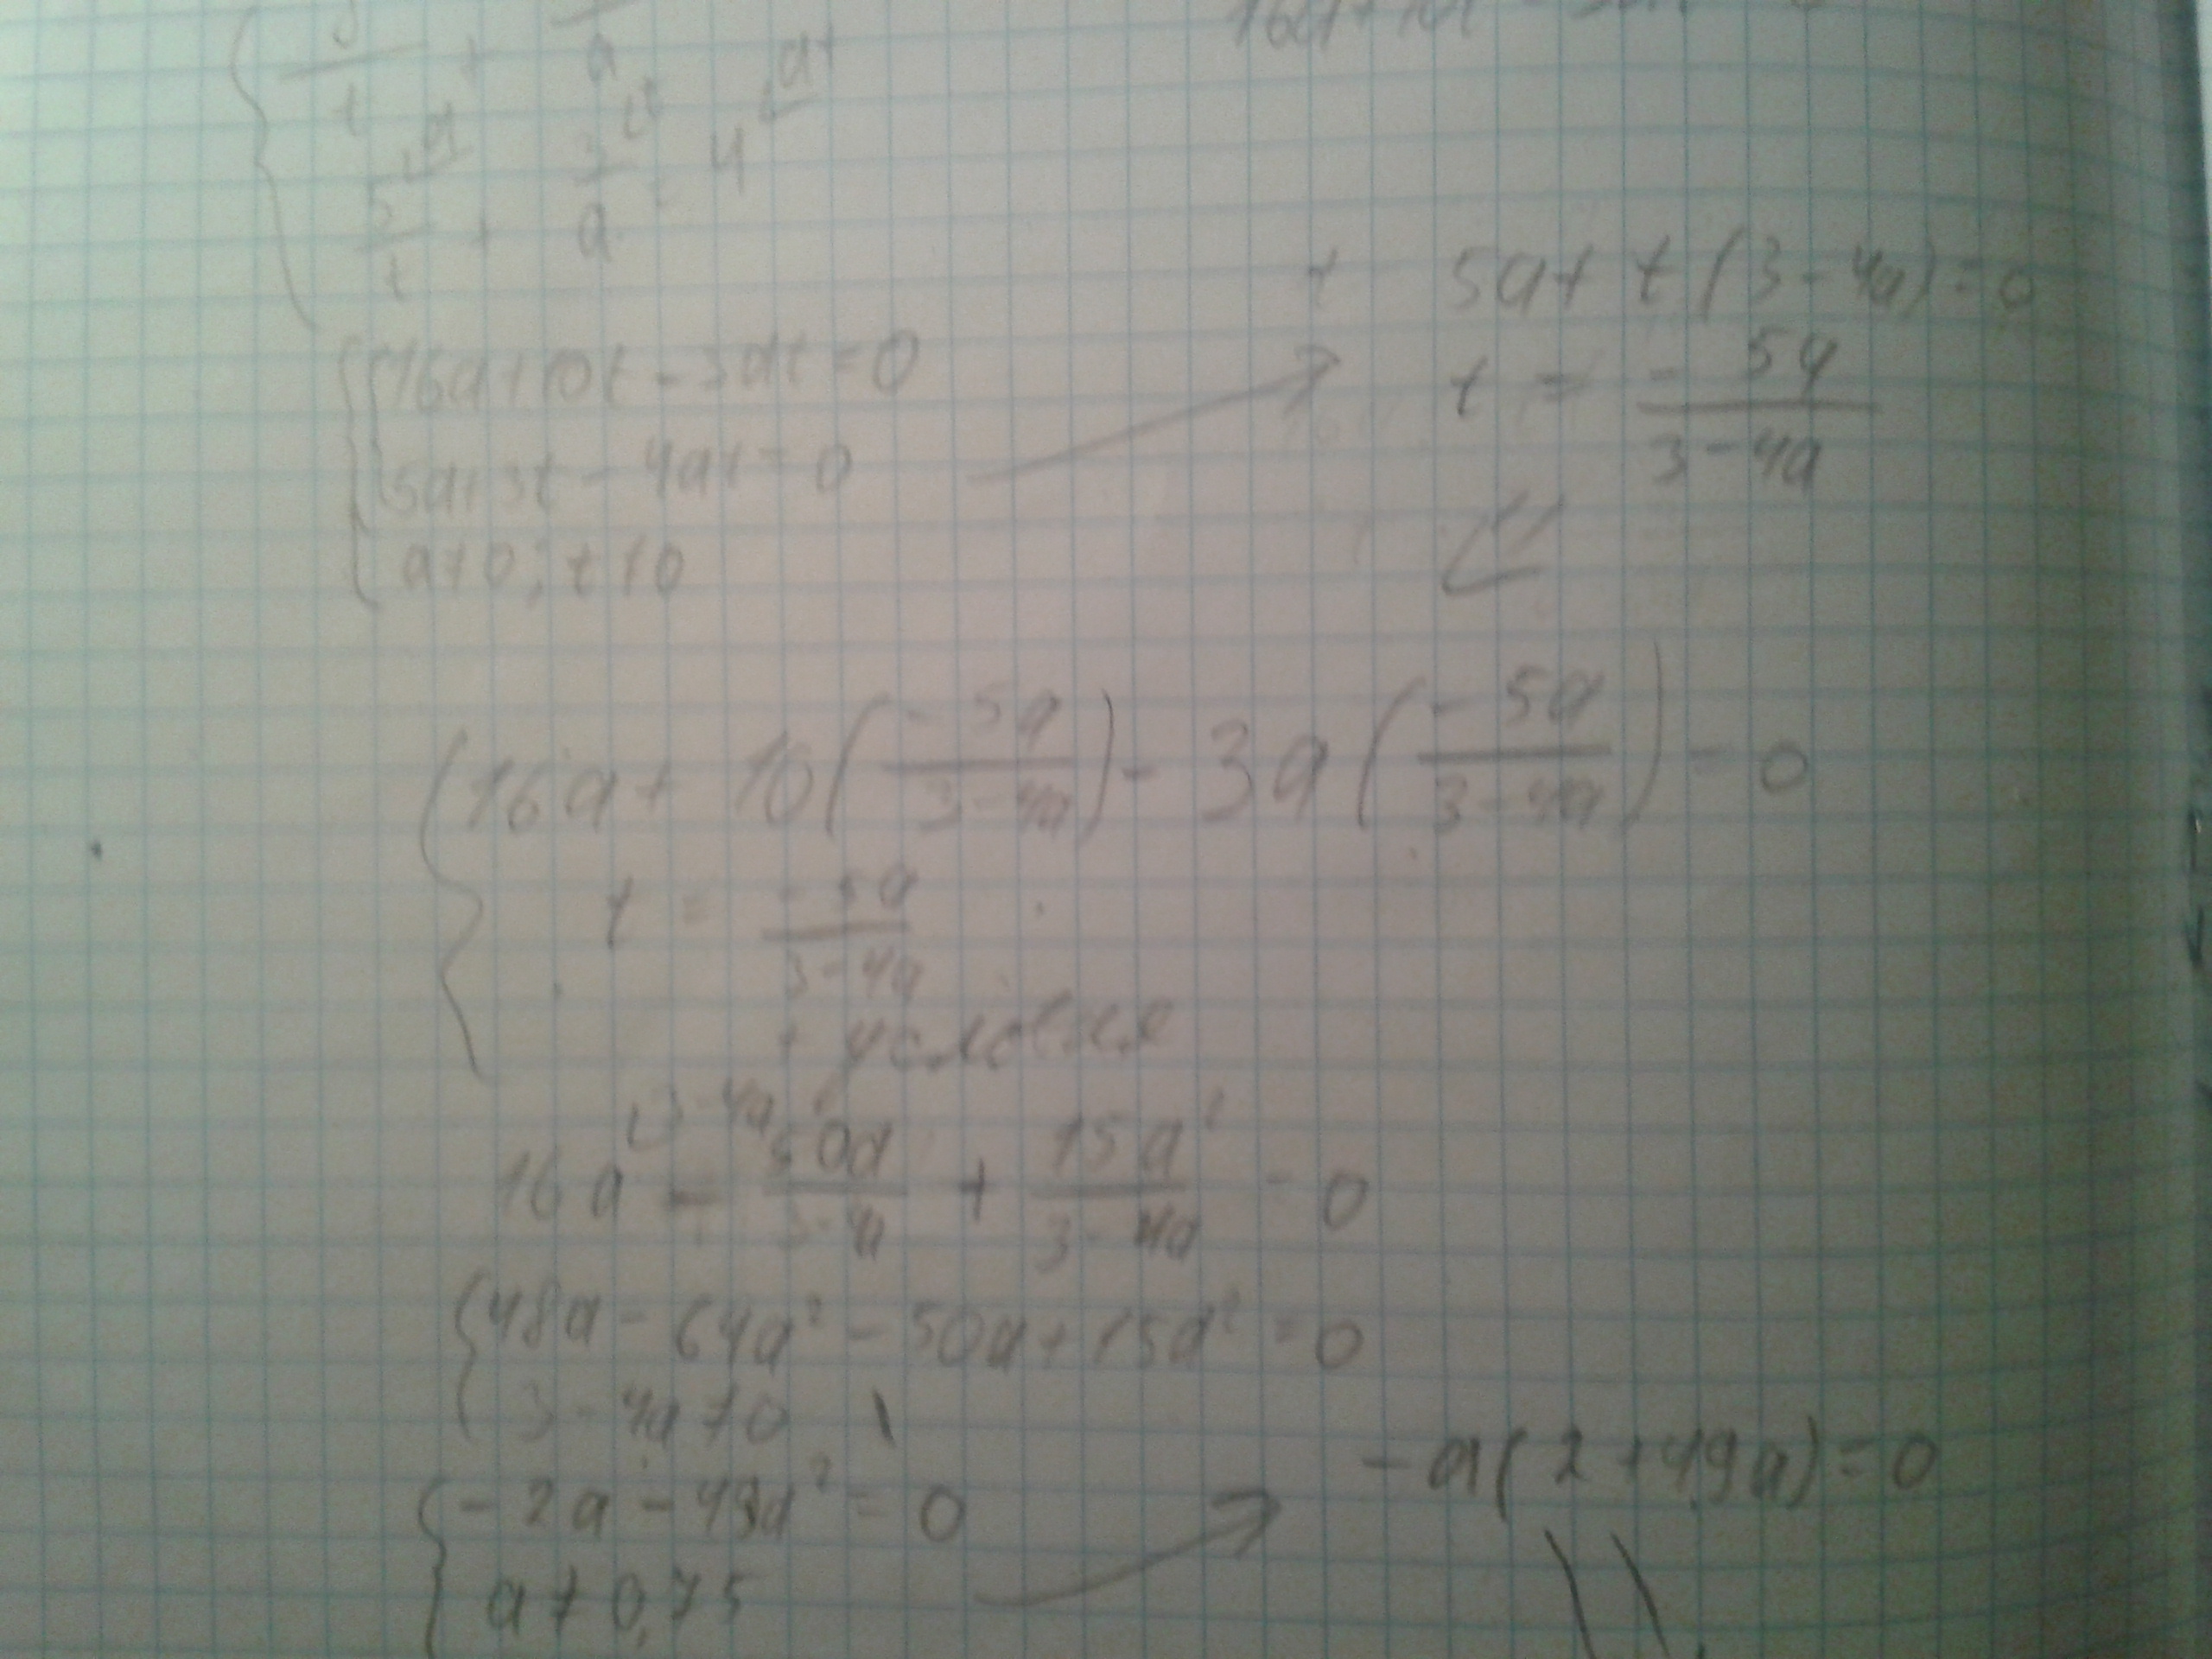 5/t + 3/a = 4
16a + 10t - 3at = 0
5a + 3t - 4at = 0
a ≠ 0; t ≠ 0
5a + t(3 - 4a) = 0
t = -5a/(3 - 4a)
16a + 10(-5a/(3 - 4a)) - 3a(-5a/(3 - 4a)) = 0
t = -5a/(3 - 4a)
+ условия
16a - 50a/(3 - 4a) + 15a²/(3 - 4a) = 0
48a - 64a² - 50a + 15a² = 0
3 - 4a ≠ 0
-2a - 49a² = 0
a ≠ 0,75
-a(2 + 49a) = 0